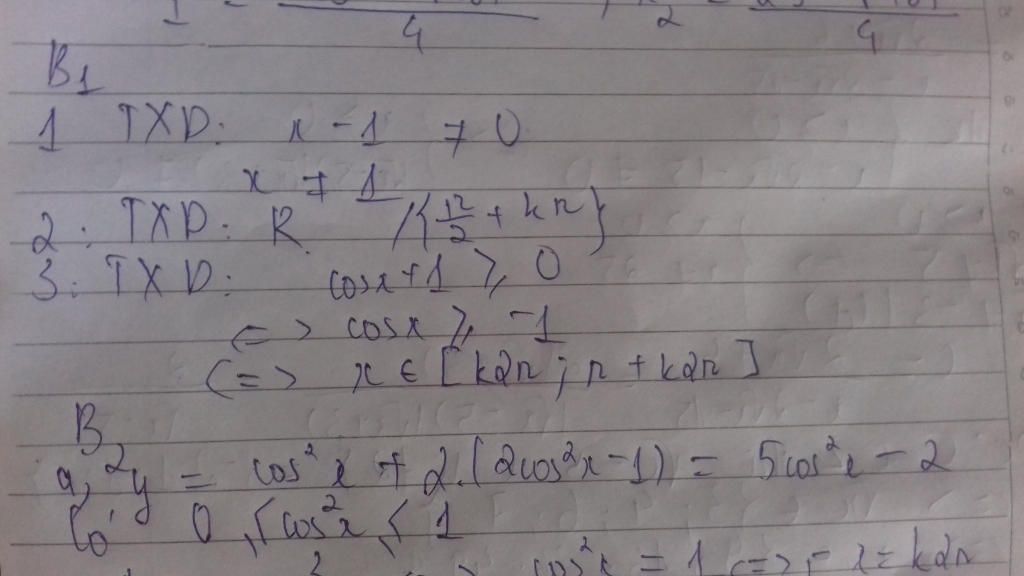 4 4
B1
1 TXD: x - 1 ≠ 0
x ≠ 1
2: TXD: R /{π/2 + kπ}
3: TXD: cosx + 1 ≥ 0
<=> cosx ≥ -1
<=> x ∈ [k2π; π + k2π]
B2
a, y = cos²x + 2.(2cos²x - 1) = 5cos²x - 2
Có 0 ≤ cos²x ≤ 1
cos²x = 1 <=> x = k2π